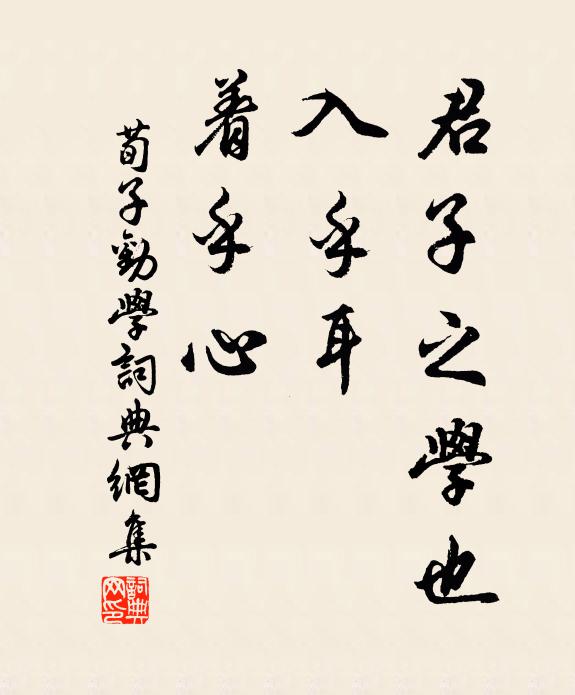 君子之學也
入乎耳
着乎心
荀子勸學詞典網集
詞典
网印